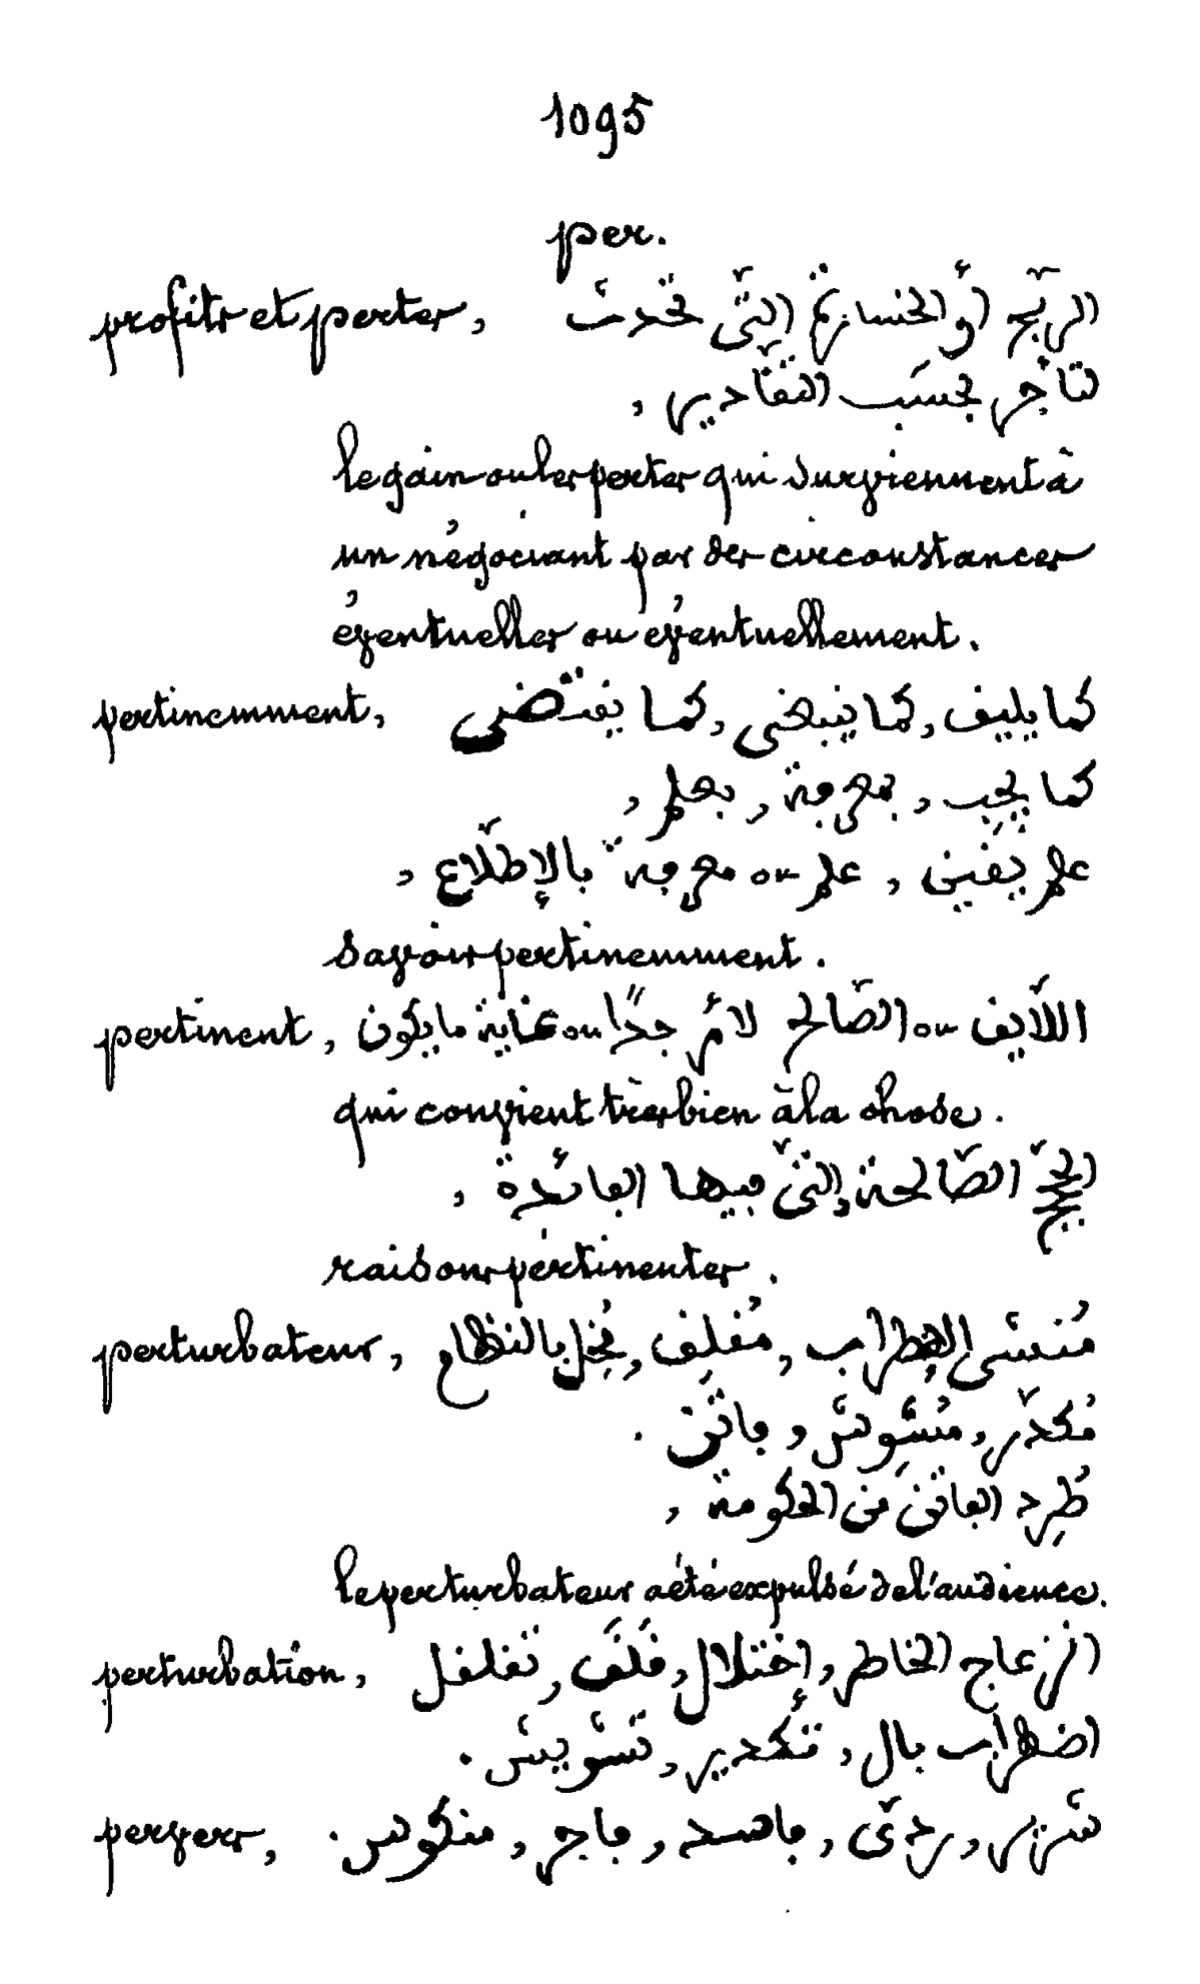 1095
per.
profits et pertes, الربّح أو الخسارة التّى تحدث
لتاجر بحسَب التقّادير,
le gain ou les pertes qui surviennent à
un négociant par des circonstances
éventuelles ou éventuellement.
pertinemment, كما يليق, كما ينبغى, كما يقتضى
كما يجب, بمعرفة, بعلم,
علم يقين, علم ou معرفة بالإطّلاع,
savoir pertinemment.
pertinent, اللّايق ou الصّالح لأمر جدًّا ou غاية ما يكون
qui convient très bien à la chose.
الحجّج الصّالحة, التّى فيها الفائدة,
raisons pertinentes.
perturbateur, مُنشى الإضطراب, مُقلِق, مُخِل بالنظام
مُكدّر, مُشَوِش, فاتن.
طُرِد الفاتن من الحكومة,
le perturbateur a été expulsé de l'audience.
perturbation, انزعاج الخاطر, إختلال, قَلَق, تقلقل
اضطراب بال, تكدير, تشويش.
pervers, شرير, ردّى, فاسد, فاجر, منكوس.